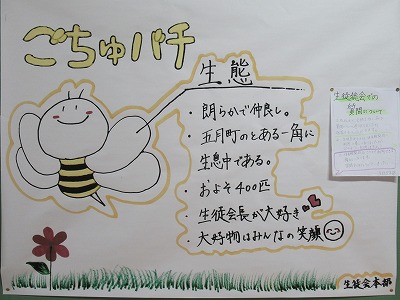 ごちゅバチ
生態
・朗らかで仲良し。
・五月町のとある一角に
生息中である。
・およそ400匹
・生徒会長が大好き
・大好物はみんなの笑顔
生徒会本部
生徒総会での
質問について